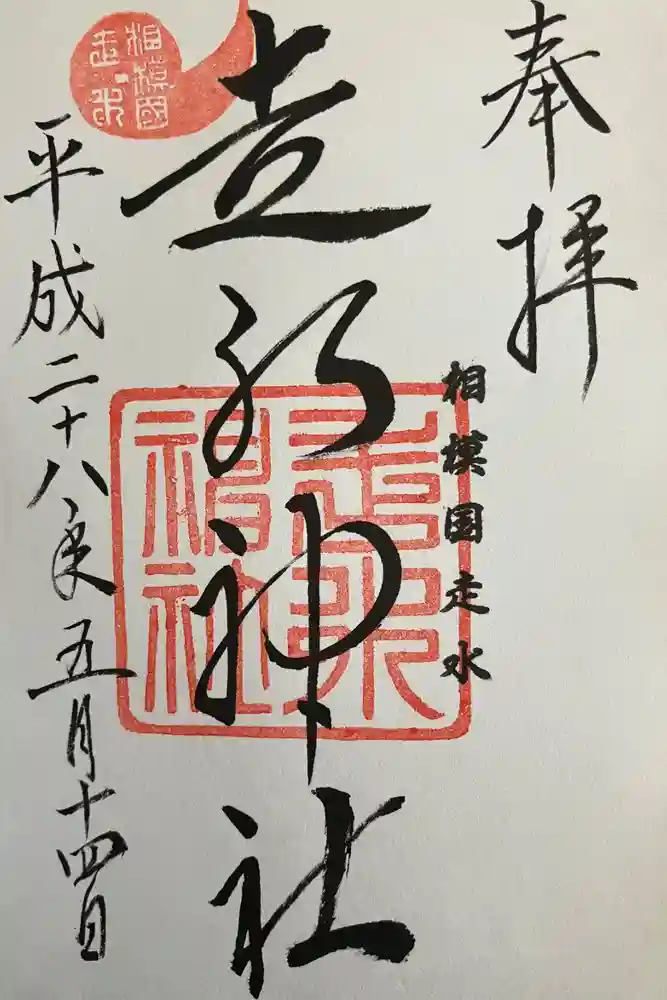 奉拝
相模国走水
走水神社
走水神社
平成二十八年五月十四日
相模國
走水